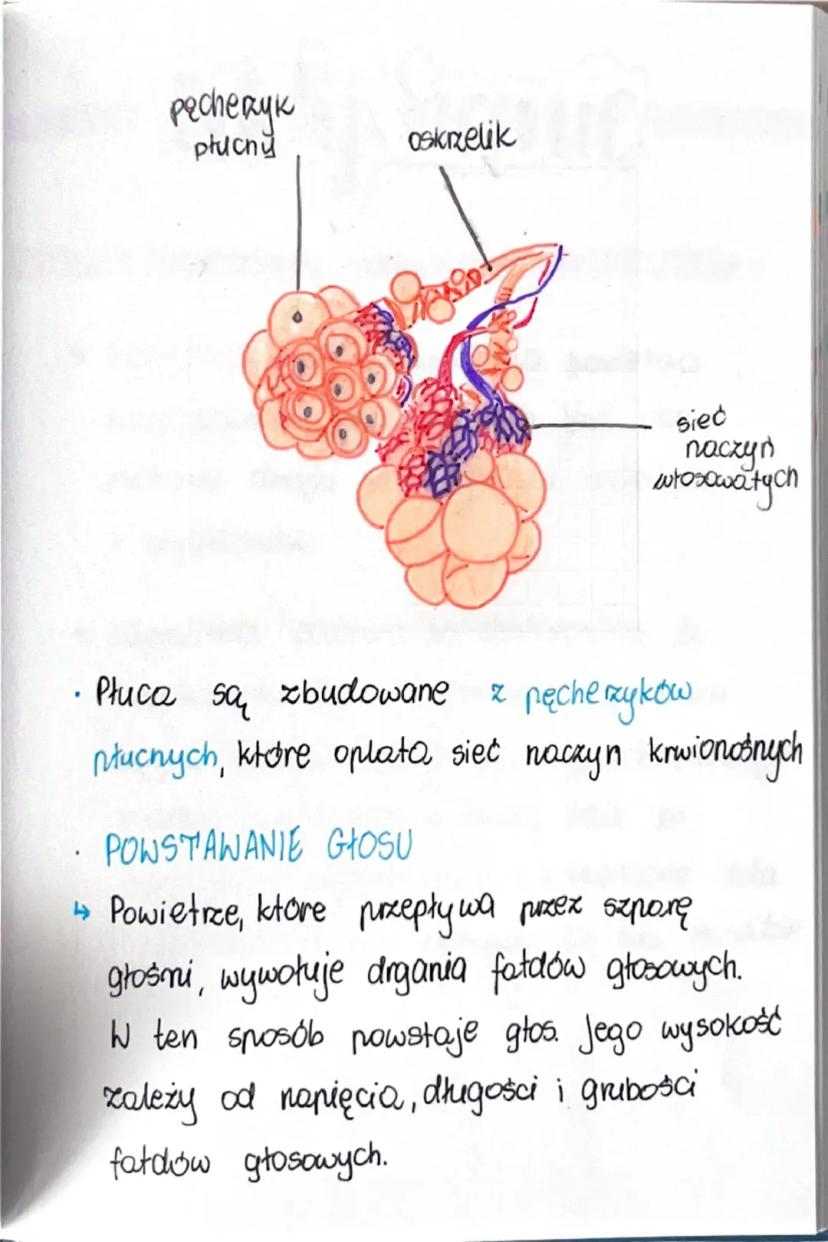 pęcherzyk
płucny
oskrzelik
sieć
naczyń
włosowatych
· Płuca są zbudowane z pęcherzyków
płucnych, które oplata sieć naczyn krwionośnych
· POWSTAWANIE GŁOSU
↳ Powietrze, które przepływa przez szparę
głośni, wywołuje drgania fałdów głosowych.
W ten sposób powstaje głos. Jego wysokość
zależy od napięcia, długości i grubości
fałdów głosowych.